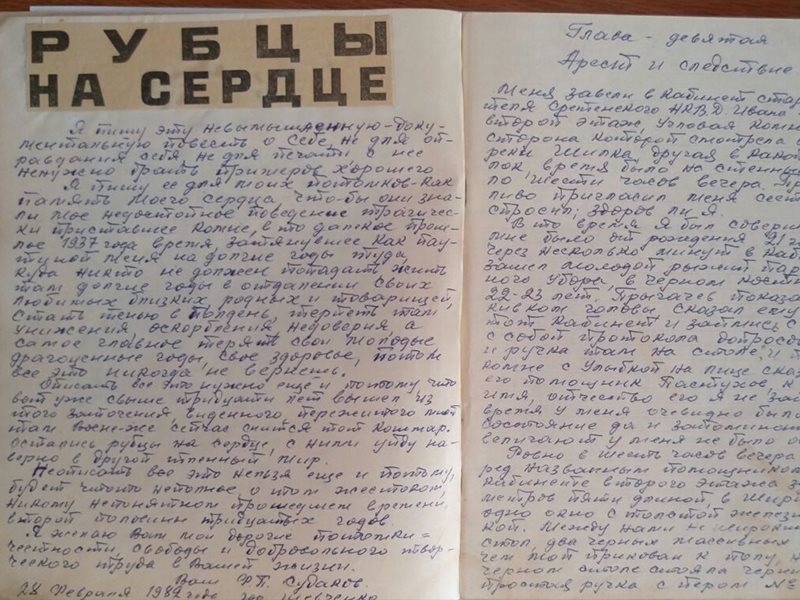 РУБЦЫ
НА СЕРДЦЕ
Я пишу эту невымышленную-доку-
ментальную повесть о себе, не для оп-
равдания себя, не для печати, с нее
ненужно брать примеров хорошего
Я пишу ее для моих потомков-как
память моего сердца, что-бы они зна-
ли мое недостойное поведение трагичес-
ки приставшее комне, в то далекое прош-
лое 1937 года время, затянувшее как пау-
тиной меня на долгие годы туда,
куда никто не должен попадать жить
там долгие годы в отдалении своих
любимых близких, родных и товарищей,
стать тенью в полдень, терпеть там
унижения, оскорбления, недоверия а
самое главное терять свои молодые
драгоценные годы, свое здоровье, потом
все это никогда не вернешь.
Описать все это нужно еще и потому, что
вот уже свыше тридцати лет вышел из
того заточения, виденного, пережитого мной
там. Все-же сейчас снится тот кошмар.
Остались рубцы на сердце, с ними уйду на-
верно в другой тленный мир.
Неописать все это нельзя еще и потому,
будет что-то неполное о том жестоком,
никому непонятном прошедшем времени,
второй половины тридцатых годов.
Я желаю Вам мои дорогие потомки=
честности, свободы и добровольного твор-
ческого труда в Вашей жизни.
Ваш Ф.П. Судаков.
28 Февраля 1989 года гор Шевченко
Глава - девятая
Арест и следствие
Меня завели в кабинет стар
теля Сретенского Н.К.В.Д. Ивана
второй этаж, угловая комна
сторона которой смотрела с
реки Шилка, другая в
время было на стенных
ло шести часов вечера. Пр
ливо пригласил меня сест
спросил; здоров ли я.
В то время я был соверш
мне было от рождения 21 го
через несколько минут в каб
зашел молодой рыжий пар
ного убора, в черном кост
22-23 лет. Пугачев показа
кивком головы, сказал ему
тот кабинет и займись с
с собой протокола допросов
и ручка там на столе. и п
комне с улыбкой на лице ска
его помощник Пастухов, к
имя, отчество его я не за
время у меня очевидно было
состояние да и запоминат
величают у меня не было о
Ровно в шесть часов вечера
ред названным помощником
кабинете второго этажа за
метров пяти длиной в шири
одно окно с толстой желез
кой. Между нами не широк
стол, два черных массивных
чем мой прикован к полу, н
черном столе стояла черни
простая ручка с пером №